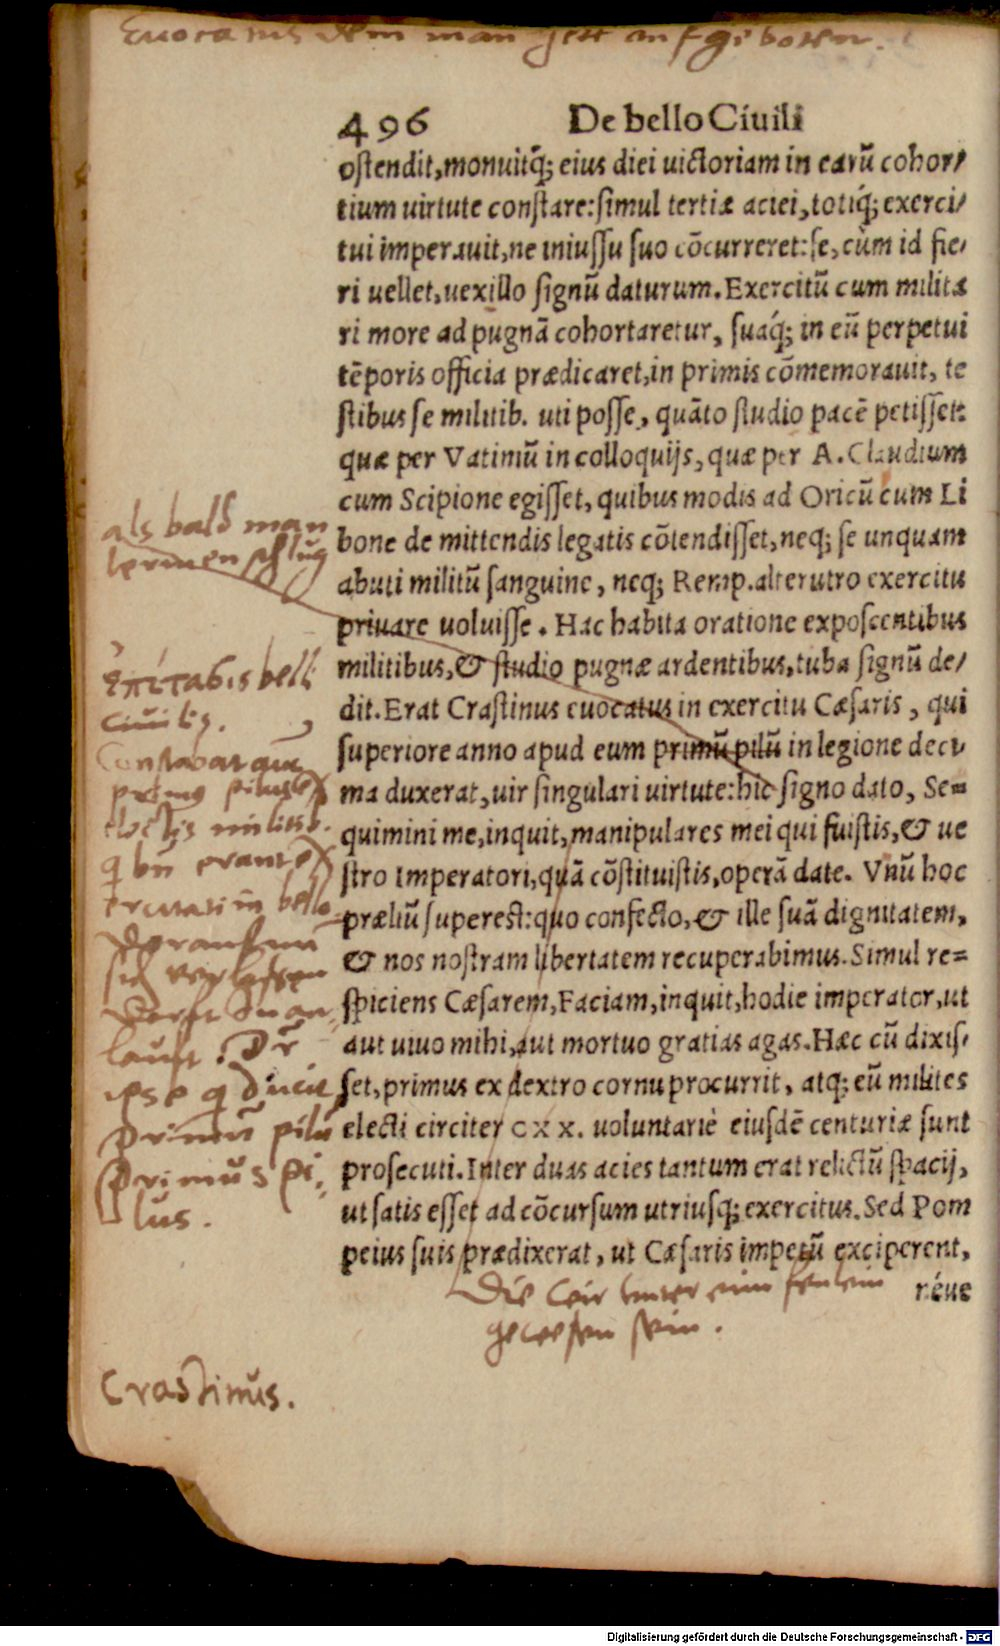 Euocatus dem man hett auffgeboten.
496 De bello Ciuili
ostendit, monuitq́; eius diei uictoriam in earũ cohor/
tium uirtute constare: simul tertiæ aciei, totiq́; exerci/
tui imperauit, ne iniussu suo cõcurreret: se, cùm id fie/
ri uellet, uexillo signũ daturum. Exercitũ cum milita
ri more ad pugnã cohortaretur, suaq́; in eũ perpetui
tẽporis officia prædicaret, in primis cõmemorauit, te
stibus se militib. uti posse, quãto studio pacẽ petisset:
quæ per Vatimũ in colloquijs, quæ per A. Claudium
cum Scipione egisset, quibus modis ad Oricũ cum Li
bone de mittendis legatis cõtendisset, neq; se unquam
abuti militũ sanguine, neq; Remp. alterutro exercitu
priuare uoluisse. Hac habita oratione exposcentibus
militibus, & studio pugnæ ardentibus, tuba signũ de/
dit. Erat Crastinus euocatus in exercitu Cæsaris, qui
superiore anno apud eum primũ pilũ in legione deci/
ma duxerat, uir singulari uirtute: hic signo dato, Se=
quimini me, inquit, manipulares mei qui fuistis, & ue
stro Imperatori, quã cõstituistis, operã date. Vnũ hoc
præliũ superest: quo confecto, & ille suã dignitatem,
& nos nostram libertatem recuperabimus. Simul re=
spiciens Cæsarem, Faciam, inquit, hodie imperator, ut
aut uiuo mihi, aut mortuo gratias agas. Hæc cũ dixis/
set, primus ex dextro cornu procurrit, atq; eũ milites
electi circiter CXX. uoluntarie eiusdẽ centuriæ sunt
prosecuti. Inter duas acies tantum erat relictũ spacij,
ut satis esset ad cõcursum utriusq; exercitus. Sed Pom
peius suis prædixerat, ut Cæsaris impetũ exciperent,
néue
als bald man
lermen schlug
belli
ciuilis.
Constabat
primus pilus ex
electis militib.
q erant ex
in bello
sich verlassen
lauft.
ipse q ducit
primũ pilũ
primus pi-
lus.
Die
gewesen sein.
Crastinus.
Digitalisierung gefördert durch die Deutsche Forschungsgemeinschaft - DFG